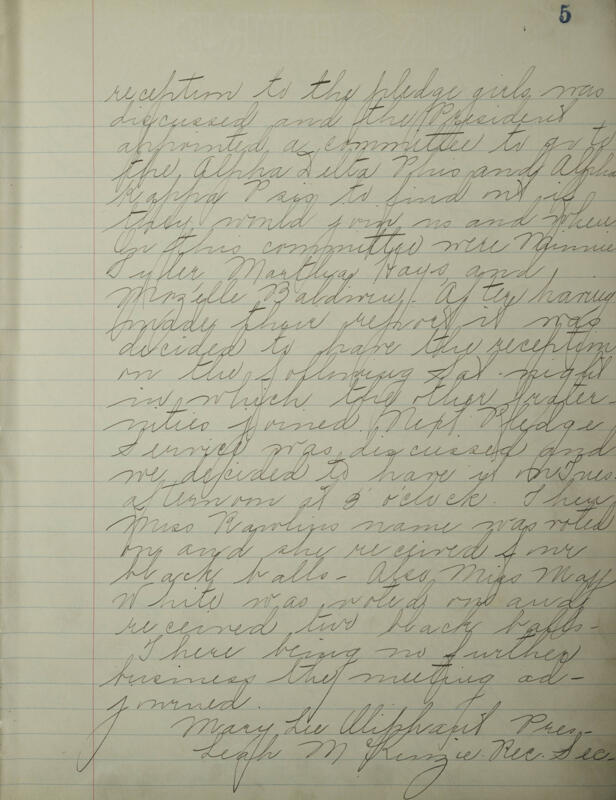 5
reception to the pledge girls was
discussed and the President
appointed a committee to go to
the Alpha Delta Phis and Alpha
Kappa Psis to find out if
they would join us and when
on this committee were Winnie
Tyler Martha Hays and
Mozelle Baldwin. After having
made their report it was
decided to have the reception
on the following Sat. night
in which the other frater-
nities joined. Next Pledge
Service was discussed and
we decided to have it on Tues.
afternoon at 3 o'clock. Then
Miss Rawlins name was voted
on and she received four
black balls - Also Miss May
White was voted on and
received two black balls -
There being no further
business the meeting ad-
journed.
Mary Lee Oliphant Pres -
Leigh McKenzie Rec. Sec -